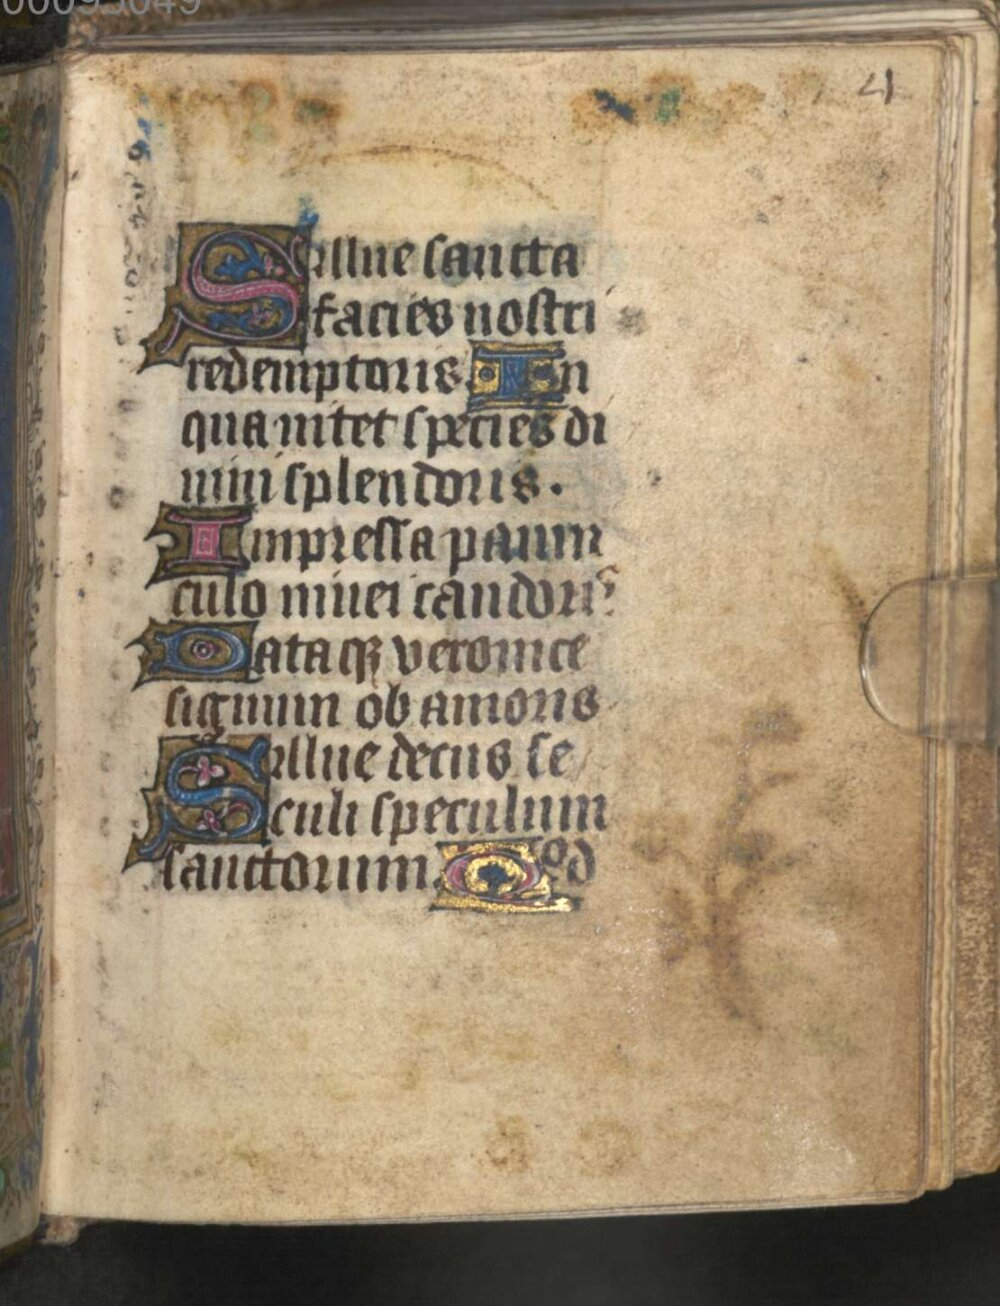 00095049
21
Salue sancta
facies nostri
redemptoris. In
qua nitet species di
uini splendoris.
Impressa pannni
culo niuei candoris
Dataqꝫ veronice
signum ob amoris
Salue decus se
culi speculum
sanctorum. Qod